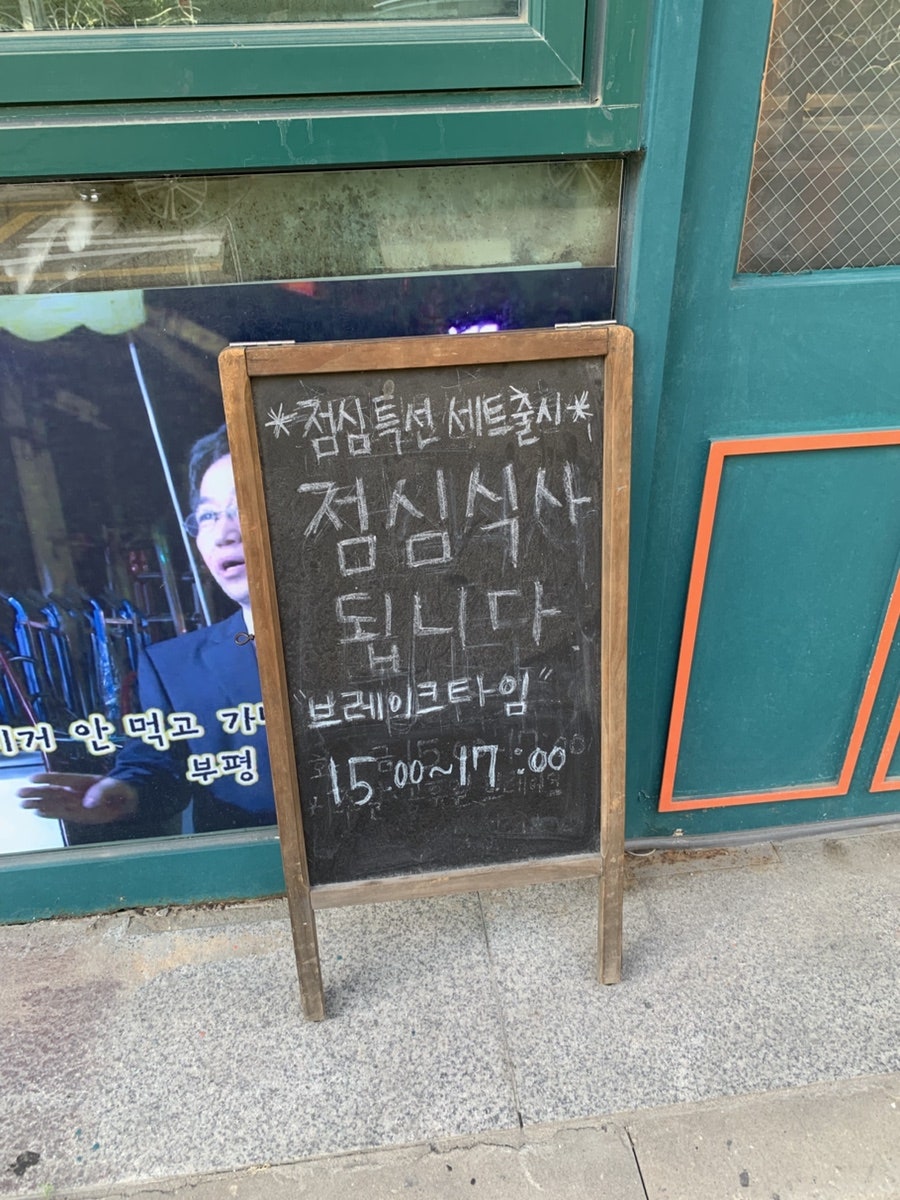 *점심특선 세트출시*
점심식사
됩니다
"브레이크타임"
15:00~17:00
안 먹고
부평